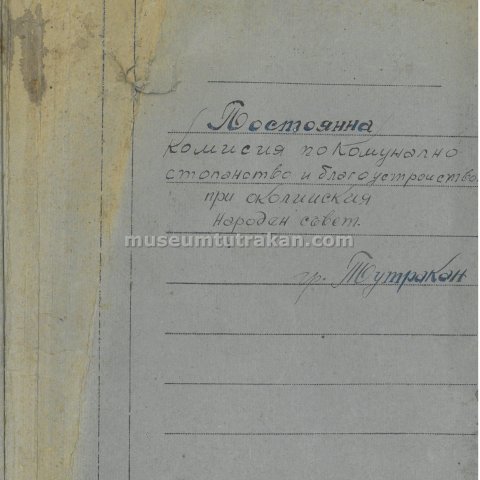 Постоянна
комисия по комунално
стопанство и благоустройство
при околийския
народен съвет.
museumtutrakan.com
гр. Тутракан